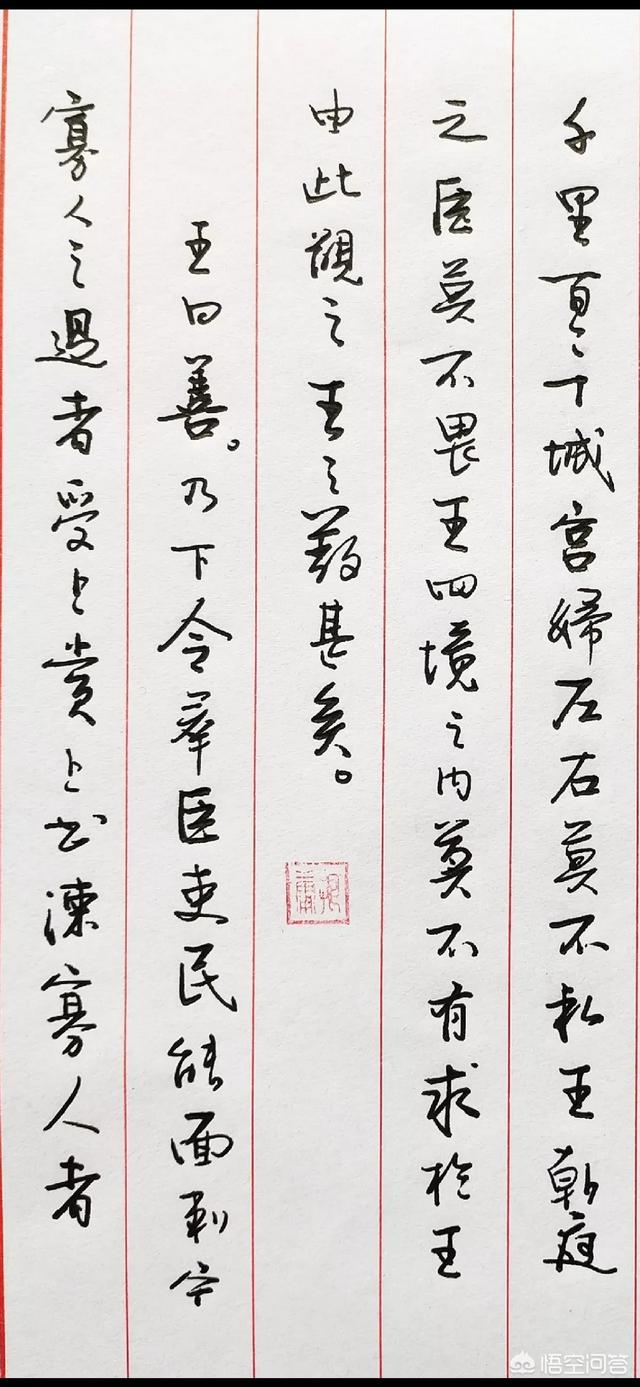 千里百二十城宮婦左右莫不私王朝庭
之臣莫不畏王四境之内莫不有求於王
由此觀之王之蔽甚矣。
王曰善。乃下令羣臣吏民能面刺
寡人之過者受上賞上书諫寡人者
悟空问答